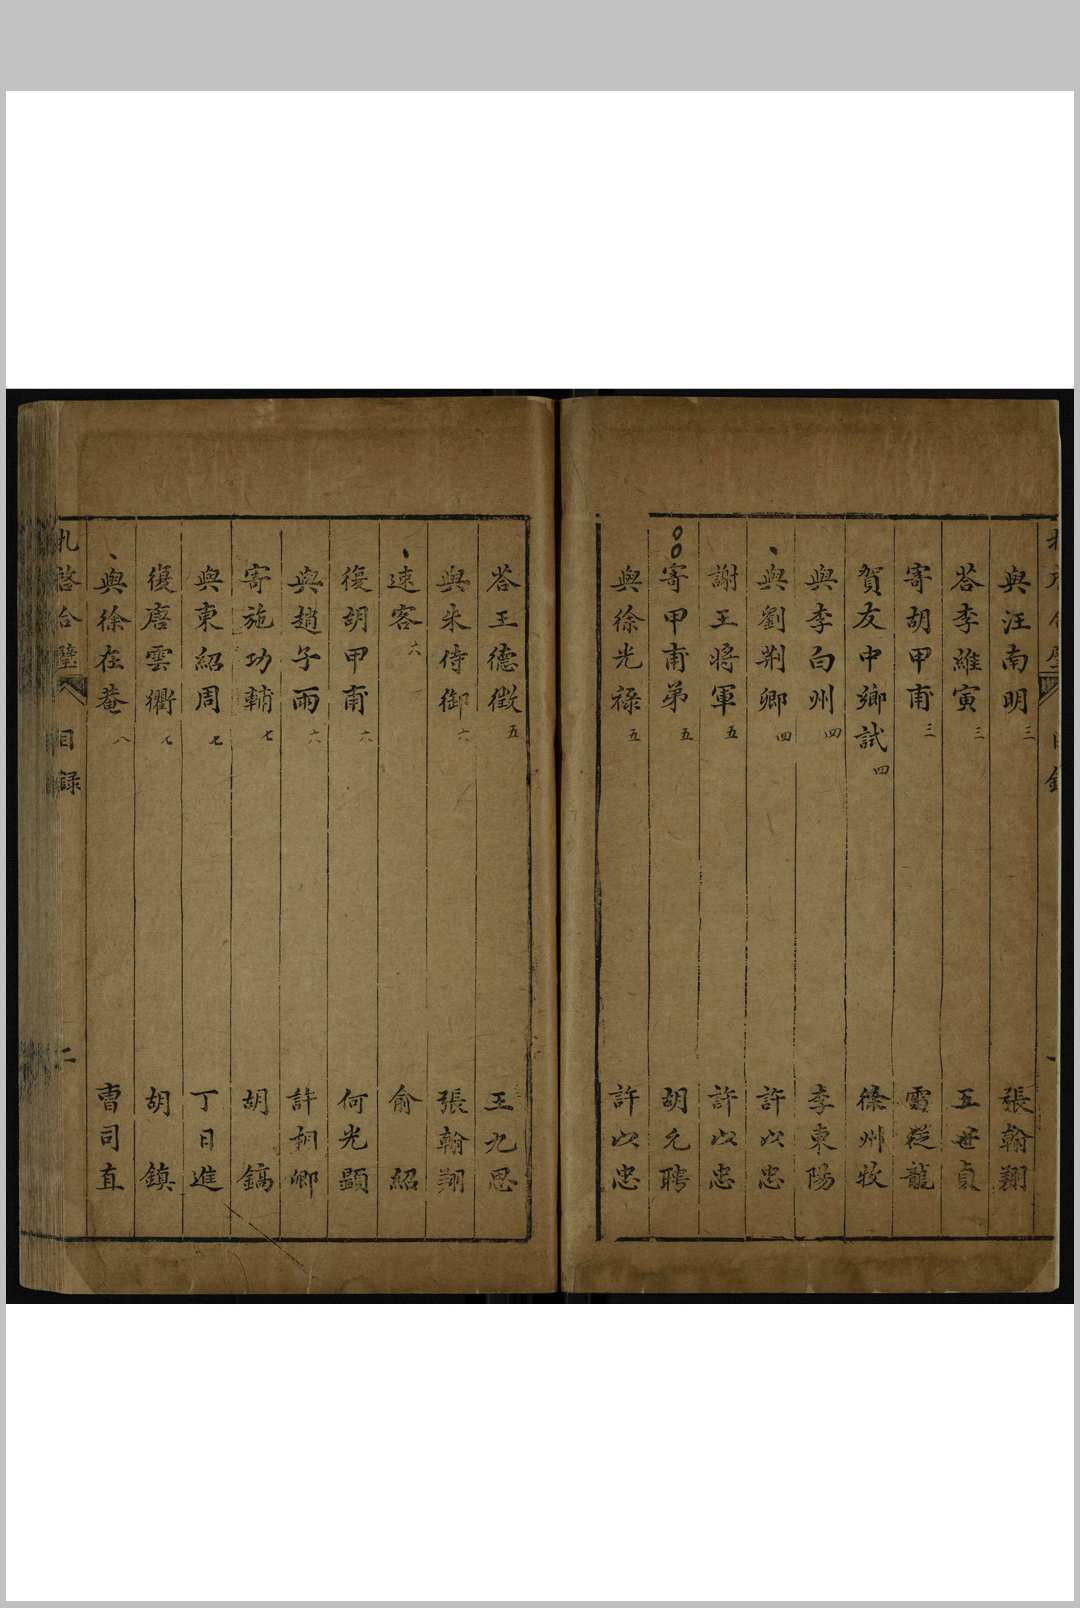 與汪南明 三 張翰翔
荅李維寅 三 王世貞
寄胡甲甫 三 雷從龍
賀友中鄉試 四 徐州牧
與李白州 四 李東陽
與劉荆卿 四 許以忠
謝王將軍 五 許以忠
寄甲甫弟 五 胡允聘
與徐光祿 五 許以忠
荅王德徵 五 王九思
與朱侍御 六 張翰翔
速客 六 俞紹
復胡甲甫 六 何光顯
與趙子雨 六 許桐卿
寄施功輔 七 胡鎬
與東紹周 七 丁日進
復唐雲衢 七 胡鎮
與徐在菴 八 曹司直
札啓合璧 目録 二